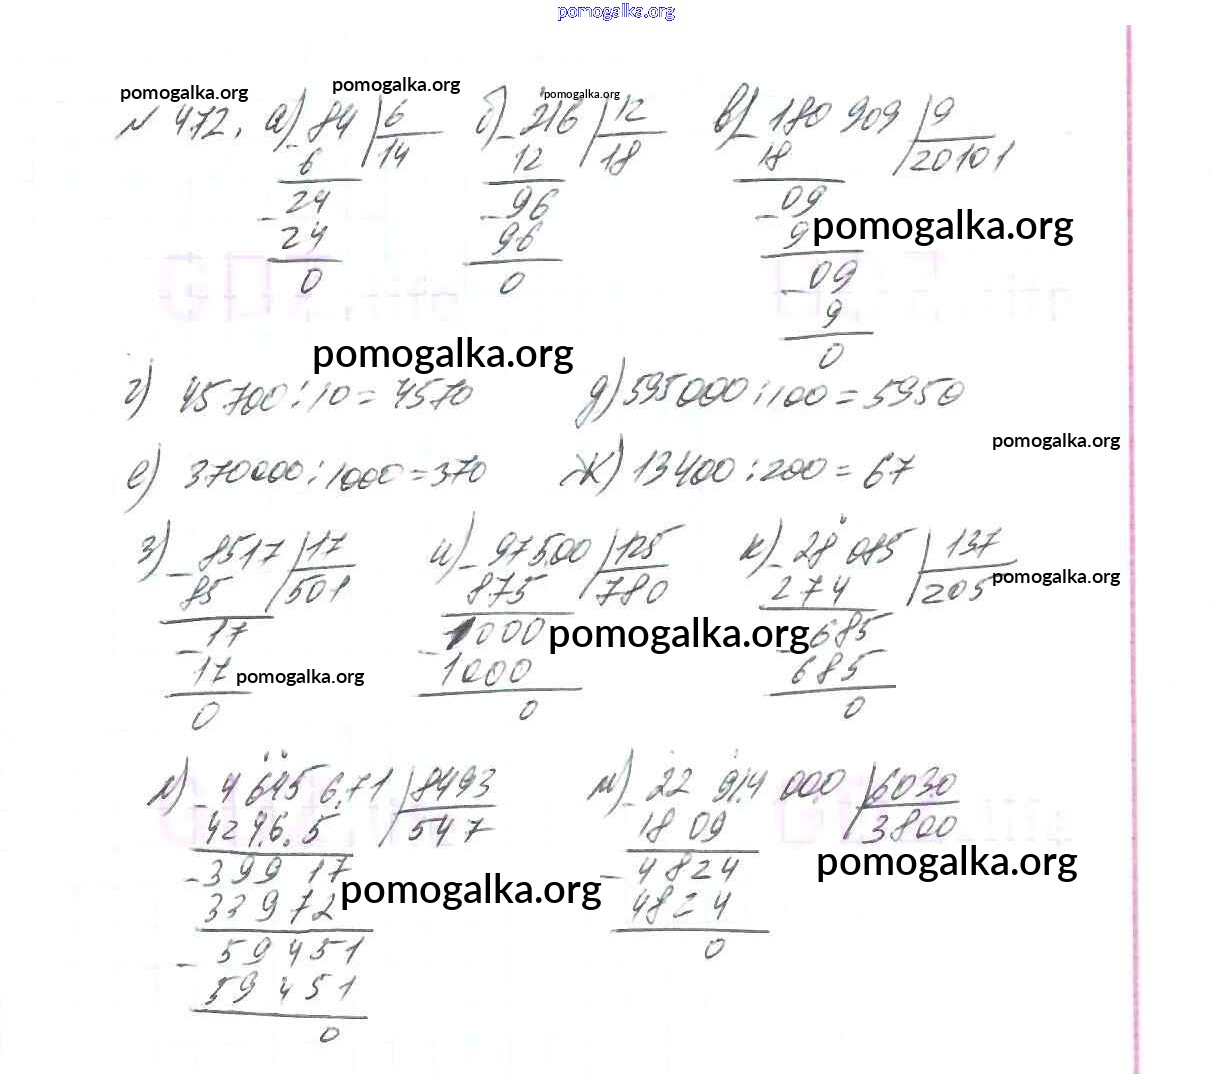 pomogalka.org
pomogalka.org pomogalka.org pomogalka.org
№ 472. а) 84 | 6 б) 216 | 12 в) 180 909 | 9
6 14 12 18 18 20101
24 96 09
24 96 9 pomogalka.org
0 0 09
9
pomogalka.org 0
г) 45700 : 10 = 4570 д) 595000 : 100 = 5950
pomogalka.org
е) 370000 : 1000 = 370 ж) 13400 : 200 = 67
з) 8517 | 17 и) 97500 | 125 к) 28 085 | 137
85 501 875 780 274 205 pomogalka.org
17 1000 pomogalka.org 685
17 pomogalka.org 1000 685
0 0 0
л) 4 645 671 | 8493 м) 22 914 000 | 6030
4246.5 547 18 09 3800
399 17 pomogalka.org 4824 pomogalka.org
339 72 4824
59 451 0
59 451
0